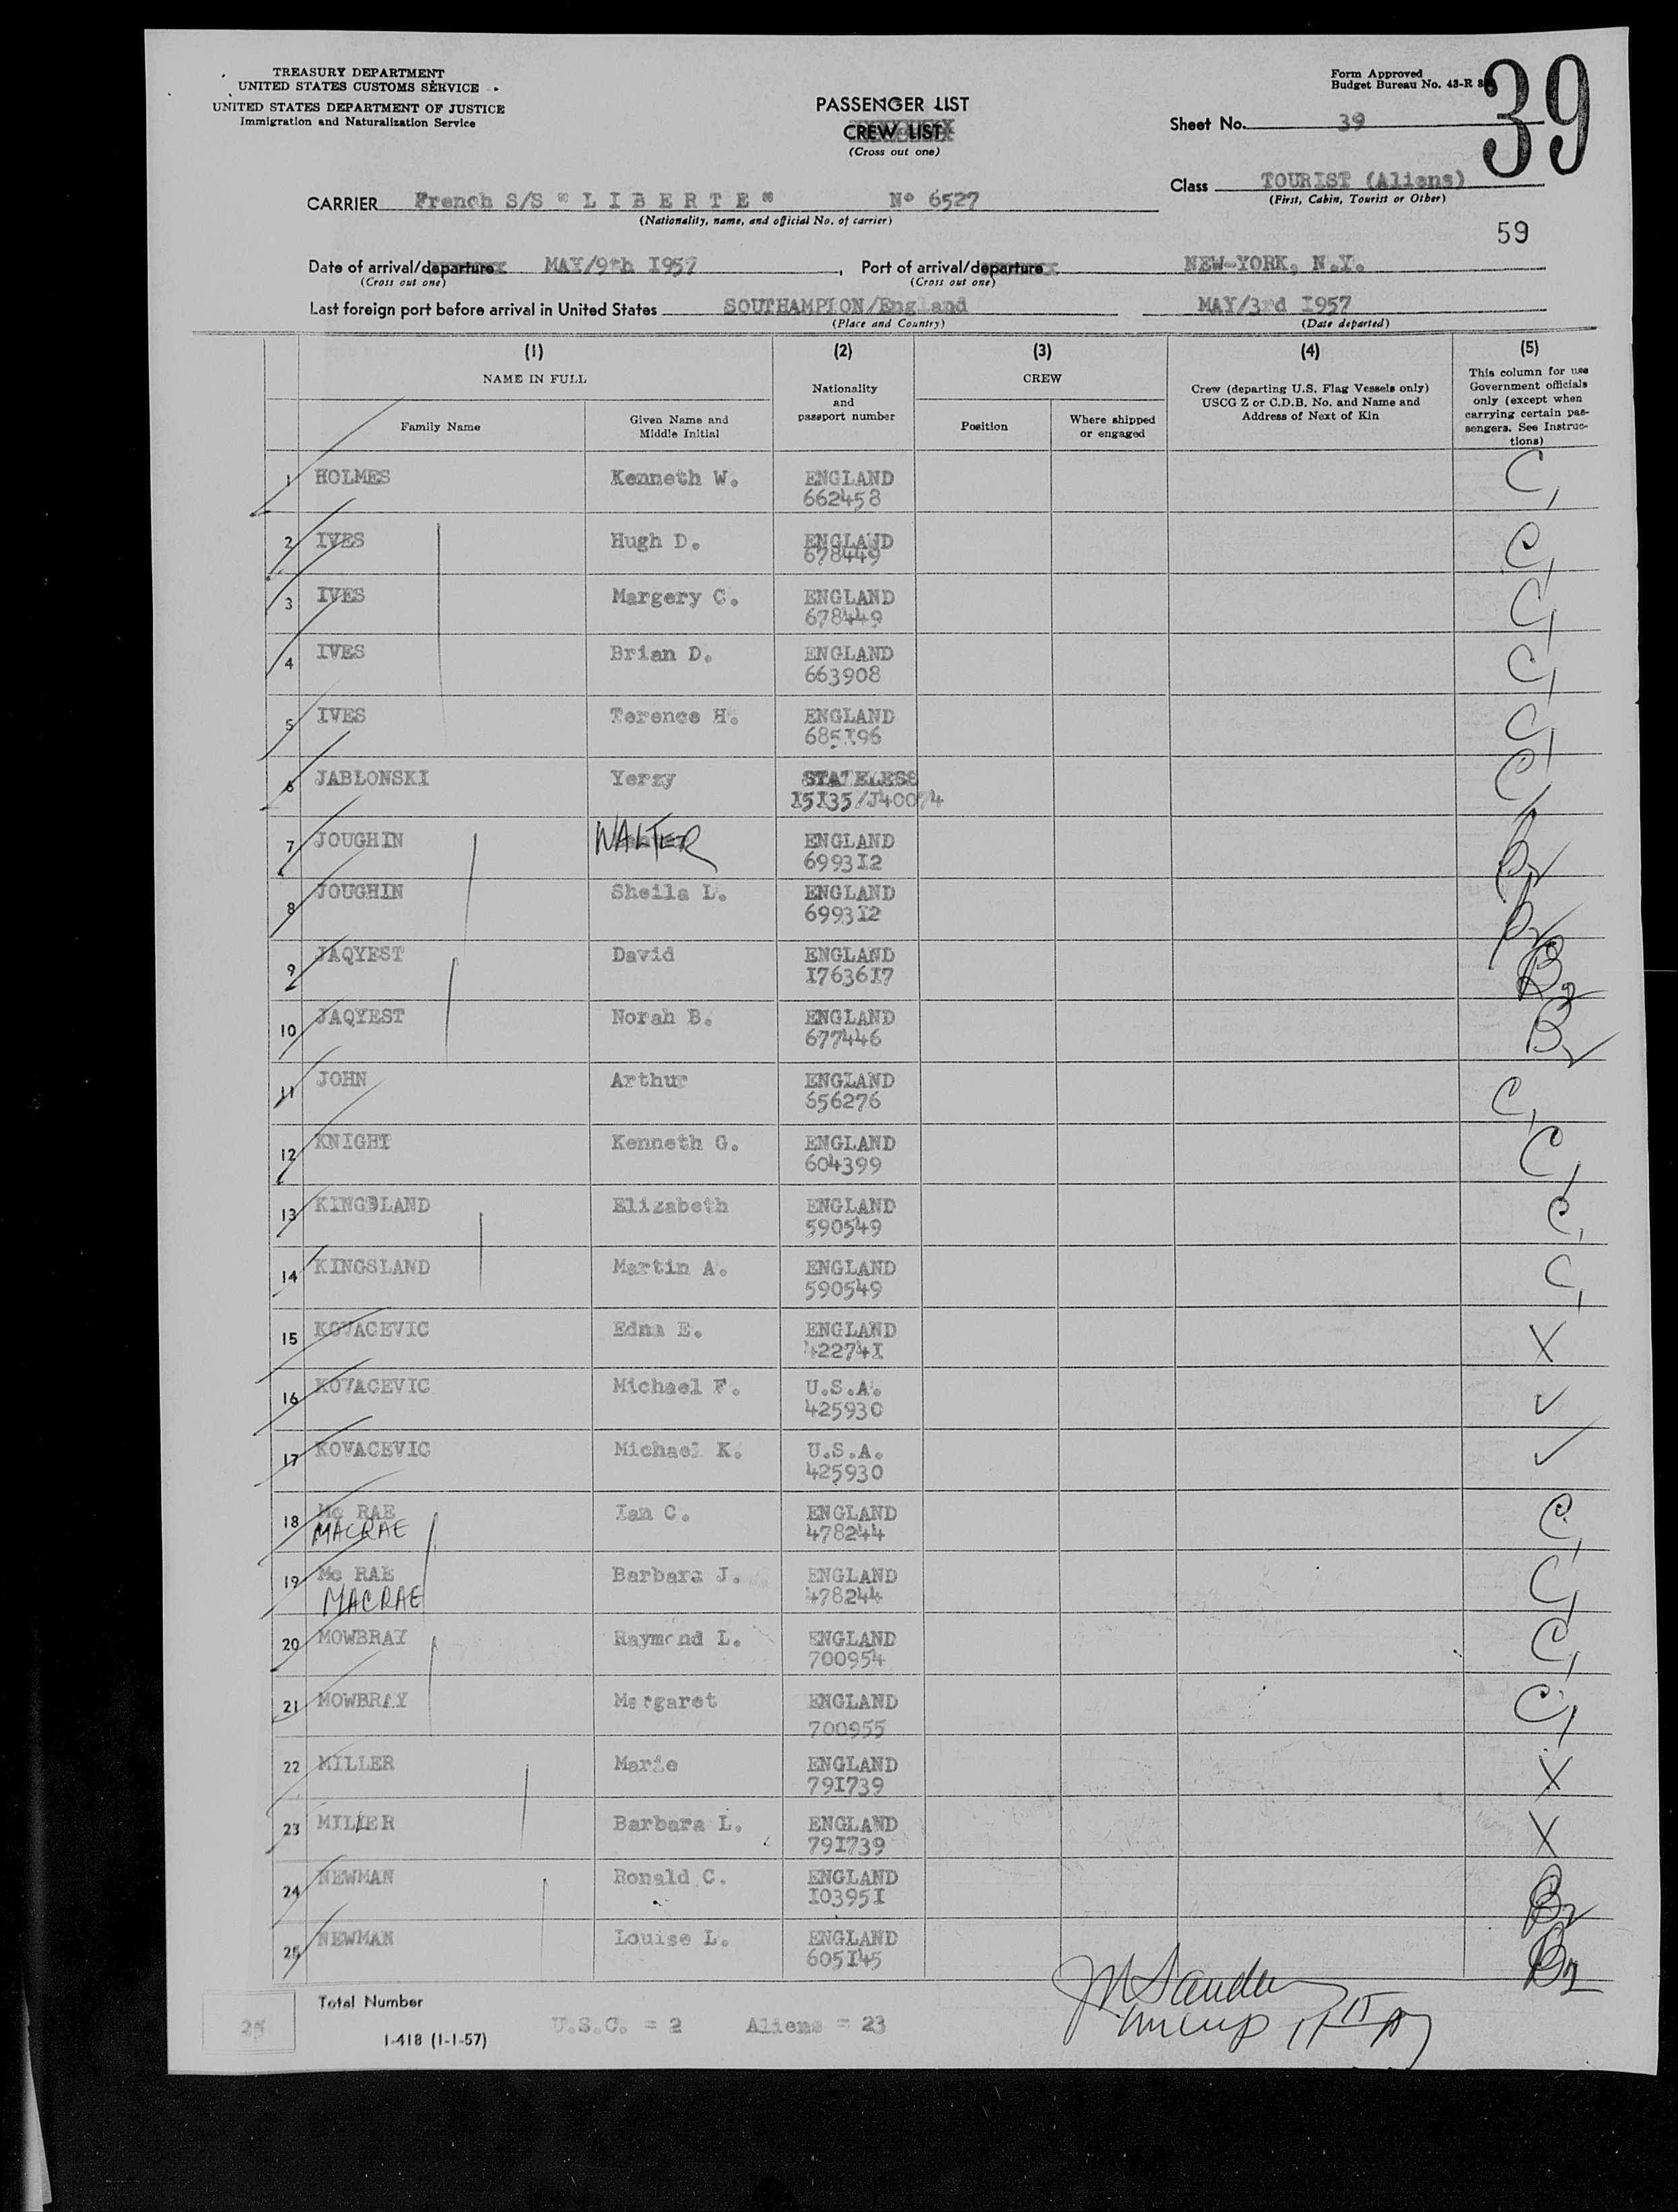 TREASURY DEPARTMENT
UNITED STATES CUSTOMS SERVICE
UNITED STATES DEPARTMENT OF JUSTICE
Immigration and Naturalization Service
PASSENGER LIST
CREW LIST
(Cross out one)
Form Approved
Budget Bureau No. 43-R
39
Sheet No. 39
Class TOURIST (Aliens)
(First, Cabin, Tourist or Other)
CARRIER French S/S " L I B E R T E " Nº 6527
(Nationality, name, and official No. of carrier)
59
Date of arrival/departure MAY/9th I957, Port of arrival/departure NEW-YORK, N.Y.
(Cross out one) (Cross out one)
Last foreign port before arrival in United States SOUTHAMPTON/England MAY/3rd I957
(Place and Country) (Date departed)
(1) (2) (3) (4) (5)
NAME IN FULL
Family Name
Given Name and Middle Initial
Nationality and passport number
CREW
Position
Where shipped or engaged
Crew (departing U.S. Flag Vessels only) USCG Z or C.D.B. No. and Name and Address of Next of Kin
This column for use Government officials only (except when carrying certain passengers. See Instructions)
1 HOLMES Kenneth W. ENGLAND C1
662458
2 IVES Hugh D. ENGLAND C1
678449
3 IVES Margery C. ENGLAND C1
678449
4 IVES Brian D. ENGLAND C1
663908
5 IVES Terence H. ENGLAND C1
685I96
6 JABLONSKI Yerzy STATELESS C1
I5I35/J40074
7 JOUGHIN WALTER ENGLAND B2
6993I2
8 JOUGHIN Sheila L. ENGLAND B2
6993I2
9 JAQYEST David ENGLAND B2
I7636I7
10 JAQYEST Norah B. ENGLAND B2
677446
11 JOHN Arthur ENGLAND C1
656276
12 KNIGHT Kenneth G. ENGLAND C1
604399
13 KINGSLAND Elizabeth ENGLAND C1
590549
14 KINGSLAND Martin A. ENGLAND C1
590549
15 KOVACEVIC Edna E. ENGLAND X
42274I
16 KOVACEVIC Michael F. U.S.A. ✓
425930
17 KOVACEVIC Michael K. U.S.A. ✓
425930
18 Mc RAE Ian C. ENGLAND C1
MACRAE 478244
19 Mc RAE Barbara J. ENGLAND C1
MACRAE 478244
20 MOWBRAY Raymond L. ENGLAND C1
700954
21 MOWBRAY Margaret ENGLAND C1
700955
22 MILLER Marie ENGLAND X
79I739
23 MILLER Barbara L. ENGLAND X
79I739
24 NEWMAN Ronald C. ENGLAND B2
I0395I
25 NEWMAN Louise L. ENGLAND B2
605I45
25
Total Number U.S.C. = 2 Aliens = 23
I-418 (1-1-57)